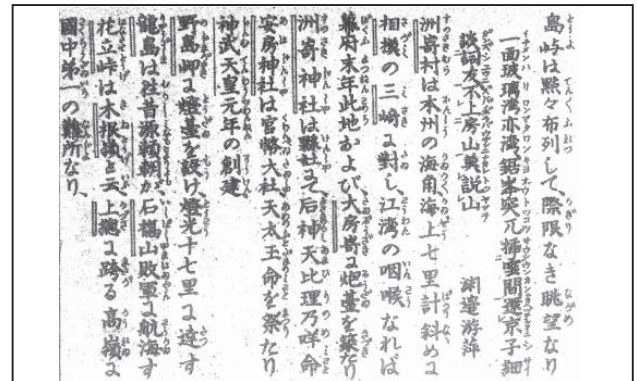 島屿は㸃々布列して、際限なき眺望なり
一面玻璃湾亦湾鋸峯突兀挿雲間還京子細
談詞友不上房山莫説山　渕邊游萍
洲嵜村は本州の海角海上七里計斜めに
相模の三崎に對し、江湾の咽喉なれば
幕府末年此地および大房嵜に炮臺を築たり
洲嵜神社は縣社にて后神天比理乃咩命
安房神社は官幣大社、天太玉命を祭たり
神武天皇元年の創建
野島岬は燈臺を設け燈光十七里に達す
龍島は往昔源頼朝が石橋山敗軍に航海す
花立峠は木根嶺と云上總に跨る高嶺に
國中第一の難所なり、